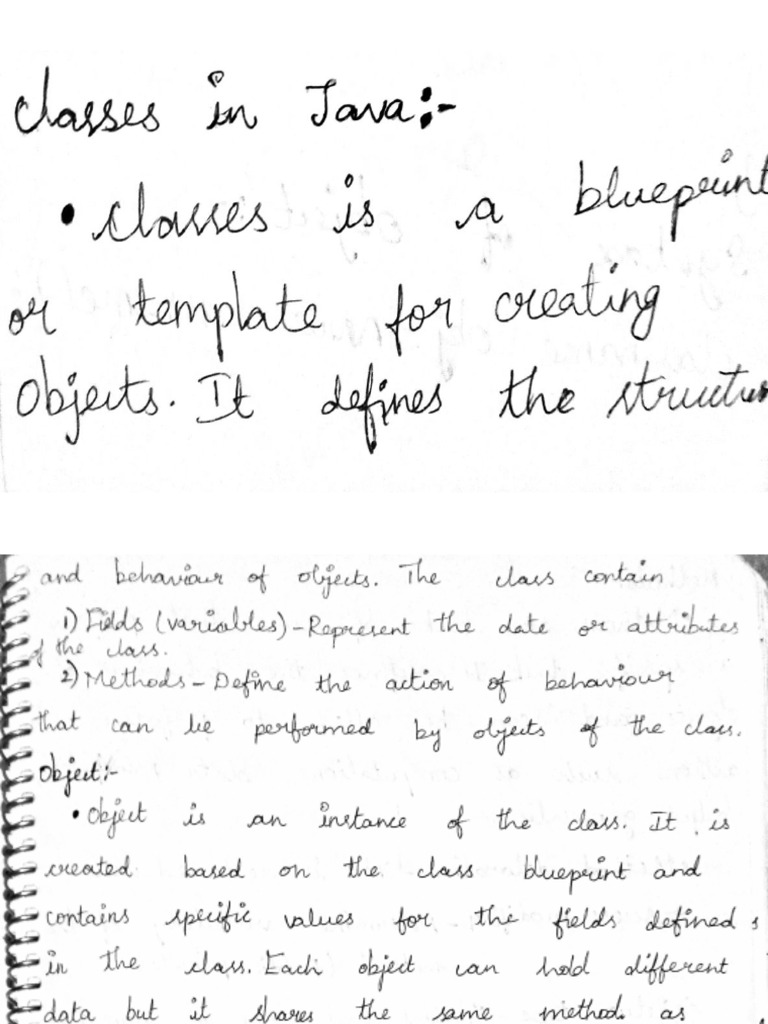 Classes in Java:-
• Classes is a blueprint
or template for creating
Objects. It defines the structur
and behaviour of objects. The class contain
1) Fields (variables) - Represent the date or attributes
of the class.
2) Methods - Define the action of behaviour
that can be performed by objects of the class.
Object:-
• Object is an instance of the class. It is
created based on the class blueprint and
contains specific values for the fields defined s
in the class. Each object can hold different
data but it shares the same method as